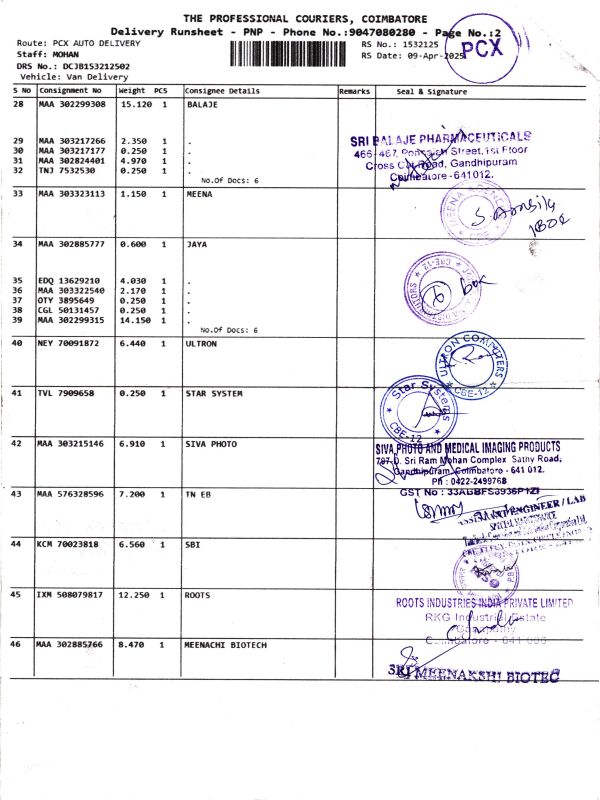 THE PROFESSIONAL COURIERS, COIMBATORE
Delivery Runsheet - PNP - Phone No.:9047080280 - Page No.:2
Route: PCX AUTO DELIVERY
RS No.: 1532125
PCX
Staff: MOHAN
RS Date: 09-Apr-2025
DRS No.: DCJB153212502
Vehicle: Van Delivery
S No Consignment No Weight PCS Consignee Details Remarks Seal & Signature
28 MAA 302299308 15.120 1 BALAJE
29 MAA 303217266 2.350 1 .
30 MAA 303217177 0.250 1 .
31 MAA 302824401 4.970 1 .
32 TNJ 7532530 0.250 1 .
No.Of Docs: 6
SRI BALAJE PHARMACEUTICALS
466-467, Street, 1st Floor
Cross Cut Road, Gandhipuram
Coimbatore - 641012.
33 MAA 303323113 1.150 1 MEENA
MEENA AGENCIES
CBE
34 MAA 302885777 0.600 1 JAYA
35 EDQ 13629210 4.030 1 .
36 MAA 303322540 2.170 1 .
37 OTY 3895649 0.250 1 .
38 CGL 50131457 0.250 1 .
39 MAA 302299315 14.150 1 .
No.Of Docs: 6
DISTRIBUTORS
CBE-12
6 box
40 NEY 70091872 6.440 1 ULTRON
ULTRON COMPUTERS
CBE-12
41 TVL 7909658 0.250 1 STAR SYSTEM
Star Systems
CBE-12
42 MAA 303215146 6.910 1 SIVA PHOTO
SIVA PHOTO AND MEDICAL IMAGING PRODUCTS
Sri Ram Mohan Complex Sathy Road,
Gandhipuram, Coimbatore - 641 012.
Ph : 0422-2499768
43 MAA 576328596 7.200 1 TN EB
GST No :
ASSISTANT ENGINEER / LAB
44 KCM 70023818 6.560 1 SBI
45 IXM 508079817 12.250 1 ROOTS
ROOTS INDUSTRIES INDIA PRIVATE LIMITED
RKG Industrial Estate
Coimbatore - 641 006
46 MAA 302885766 8.470 1 MEENACHI BIOTECH
SRI MEENAKSHI BIOTEC